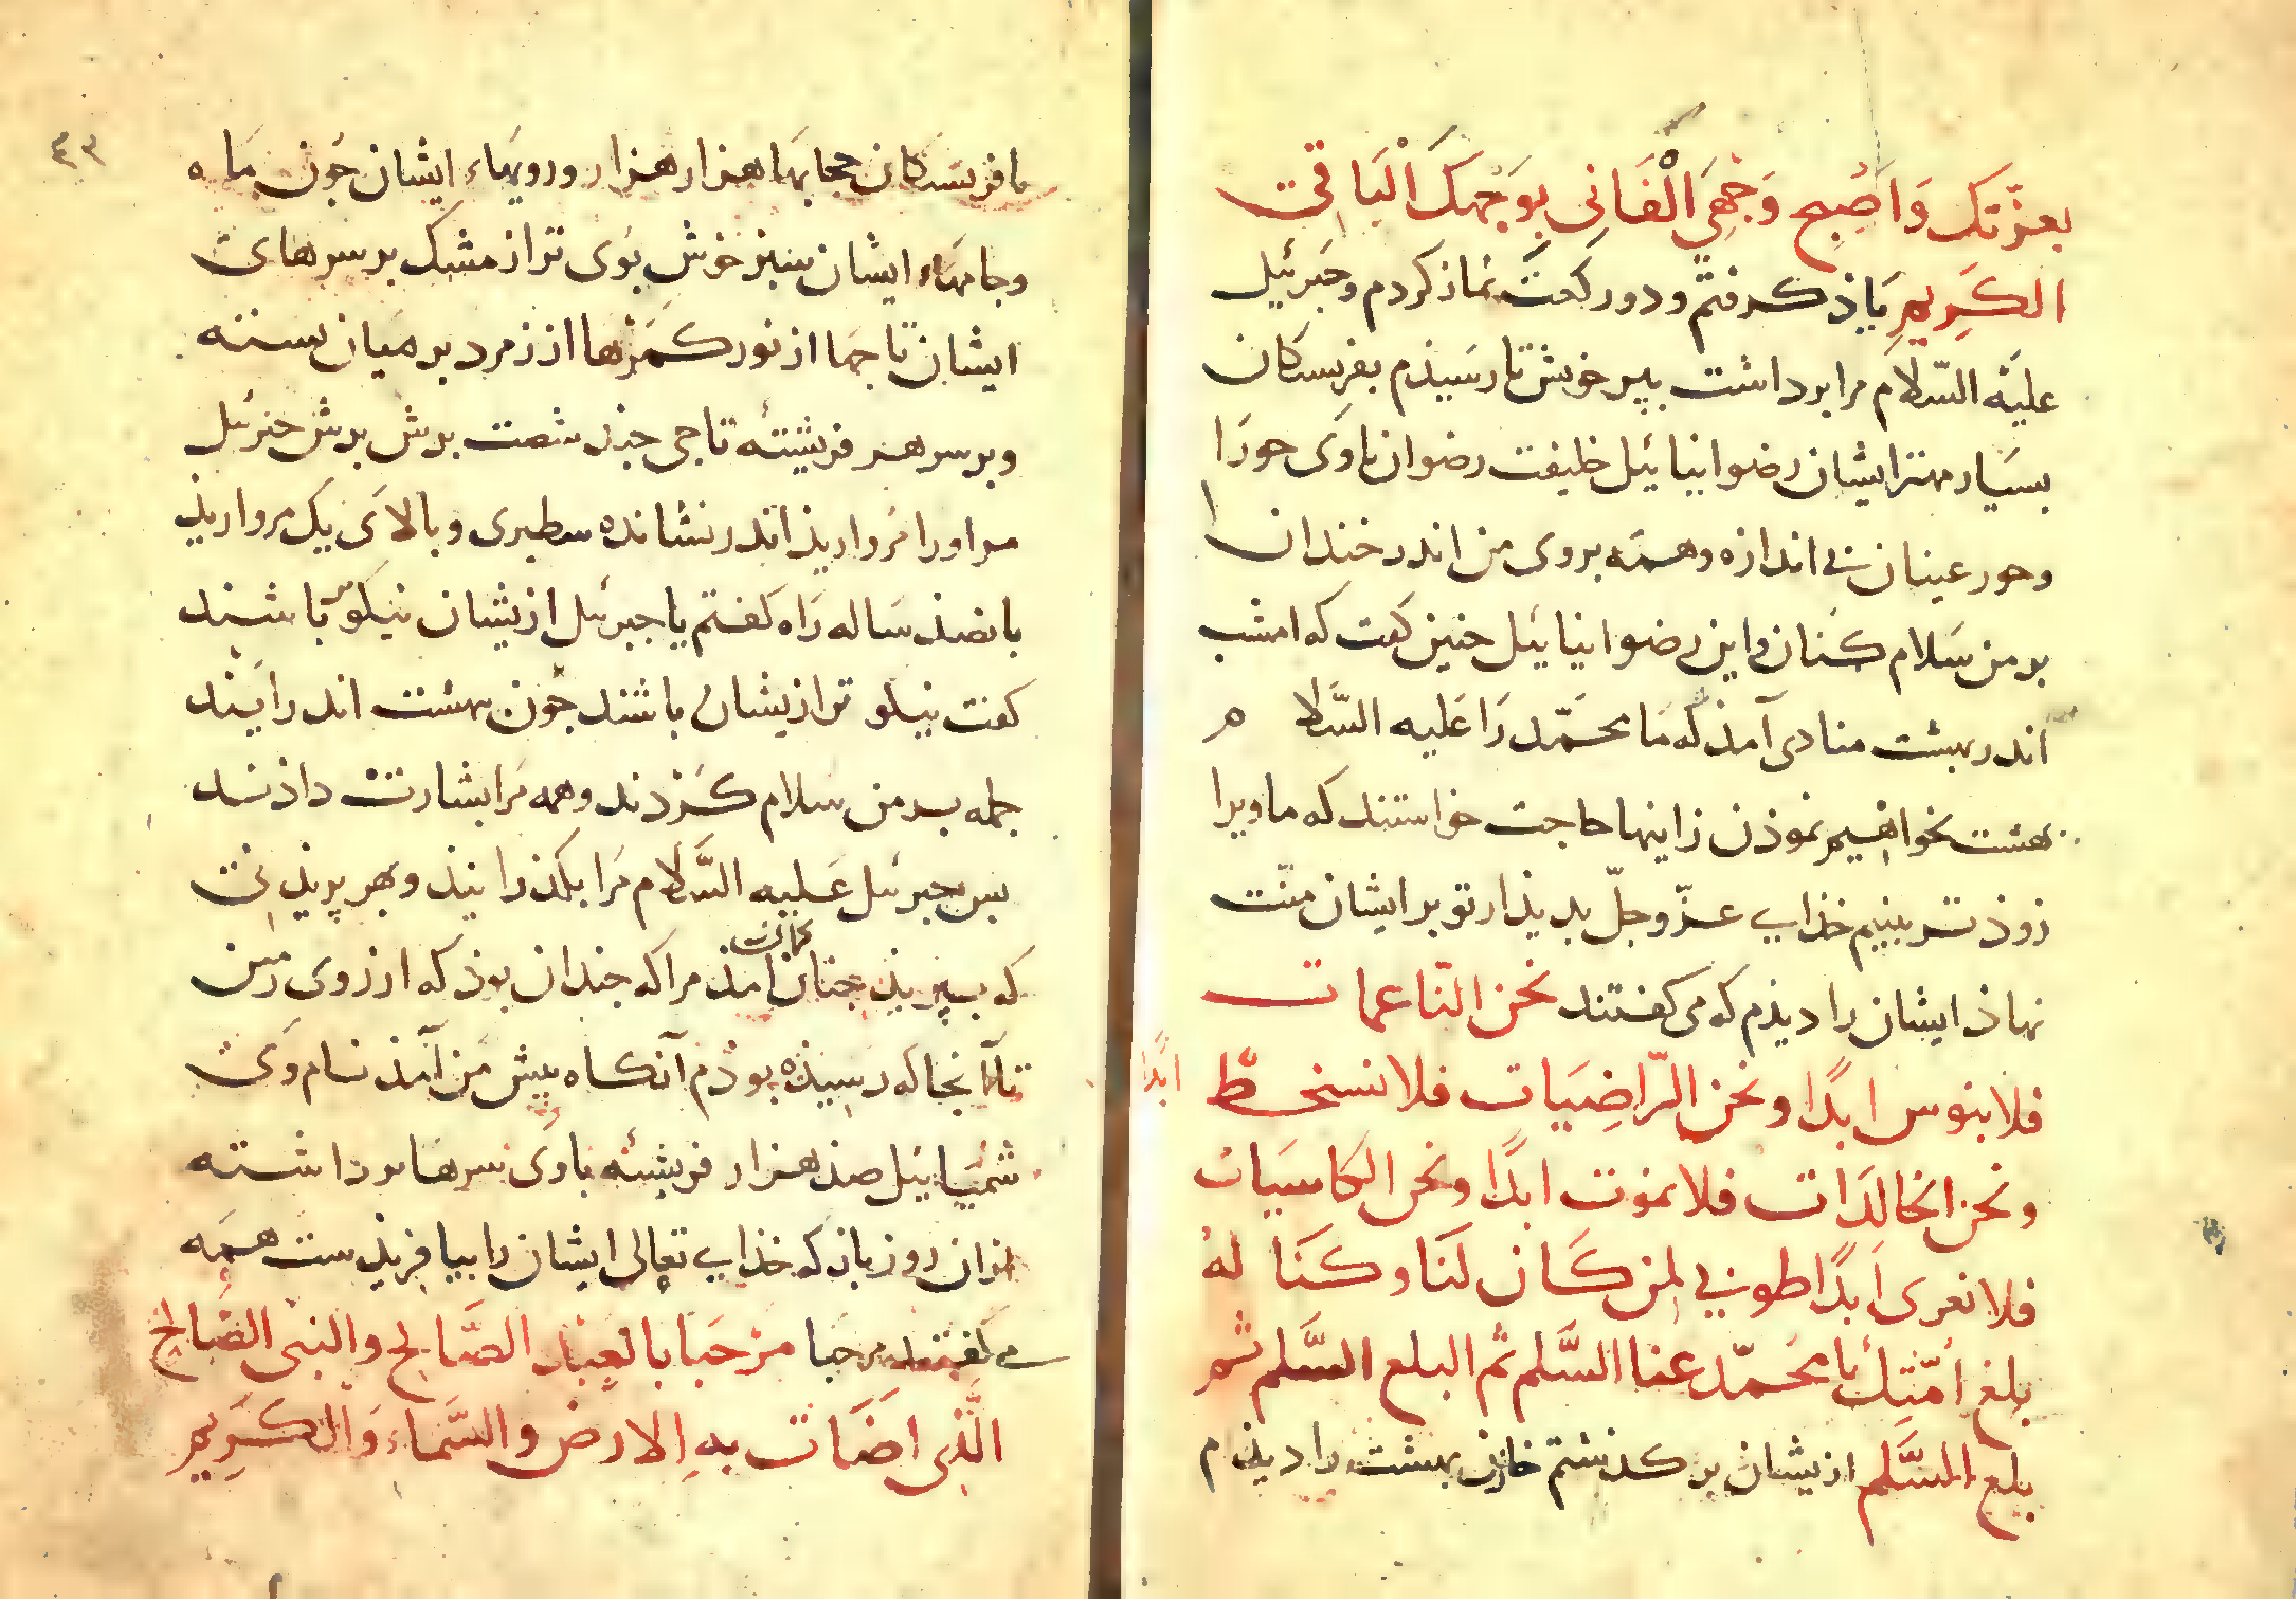 بعزّتك وَاَصُبح وَجْهِيَ الْفَانِی بوَجْهِكَ اَلْبَاقِی
الكَرِيمِ يَاذ كرفتم و دو ركعت نماز كردم و جَبرئيل
عليَه السّلام مرا برداشت بپر خويش تا رسَيذم بفريستكان
بسيَار مهتر ايشان رضوانيائيل خليفت رضوان باوَى حورَا
وحور عينان بى اندازه وهمَه بروى من اندر خندان
بر من سَلام كنان و اين رضوانيائيل جنين كفت كه امشب
اندر بهشت منادى آمذ كه مَا محمّد رَا عَليه السَّلام
بهشت بخواهيم نموذن زاينها حاجت خواستند كه ما ويرا
زوذتر بينيم خذاى عزّوجلّ بديذار تو بر ايشان منّت
نهاذ ايشان را ديذم كه مى كفتند نحن النّاعمات
فلا نبوس ابدًا ونحن الرّاضِيَات فلا نسخط ابدًا
ونحن الخالدَات فلا نموت ابدًا ونحن الكاسيَات
فلا نعرى اَبدًا طوبى لمن كَان لنَا وكنَا له
بلغ اُمّتِك يا محَمّد عنا السَّلم ثم البلع السَّلم ثم
بلع السَّلم ازيشان بركذشتم خازن بهشت را ديذم
٤٣
با فريستكان حجابهَا هزار هزار و رويهَاء ايشان جون مَاه
وجامهَاء ايشان سبز خوش بُوى تر از مشك بر سرهاى
ايشان تاجهَا از نور كمَرها از زمرد بر ميان بسته
وبر سر هر فريشتهٔ تاجى جند شصت برش برش جبرئيل
مر اورا مرواريذ اندر نشانده سطبرى و بالاى يك مرواريذ
پانصذ سَاله رَاه كفتم يا جبرئيل ازيشان نيكوتر باشند
كفت نيكو تر ازيشان باشند جون بهشت اندر آيند
جمله بر من سلام كردند وهمه مَرا بشارت داذند
پس جبرئيل عَليه السَّلام مَرا بكذرانيذ و بهر پريذنى
كه بپريذ جنان كمان امذ مرا كه جندان بوذ كه از روى زمين
تا آنجا كه رسيذه بوذم آنكاه پيش مَن آمذ نام وَى
شميَائيل صذ هزار فريشته باوى سرها برداشته
ازان روز باز كه خذاى تعالى ايشان را بيافريذست همَه
مى كفتند مرحَبا مرْحَبا بالعبد الصَّالح والنبى الصَّالح
الَّذِى اضَات بهِ الارض والسَّماء وَالكرِيم